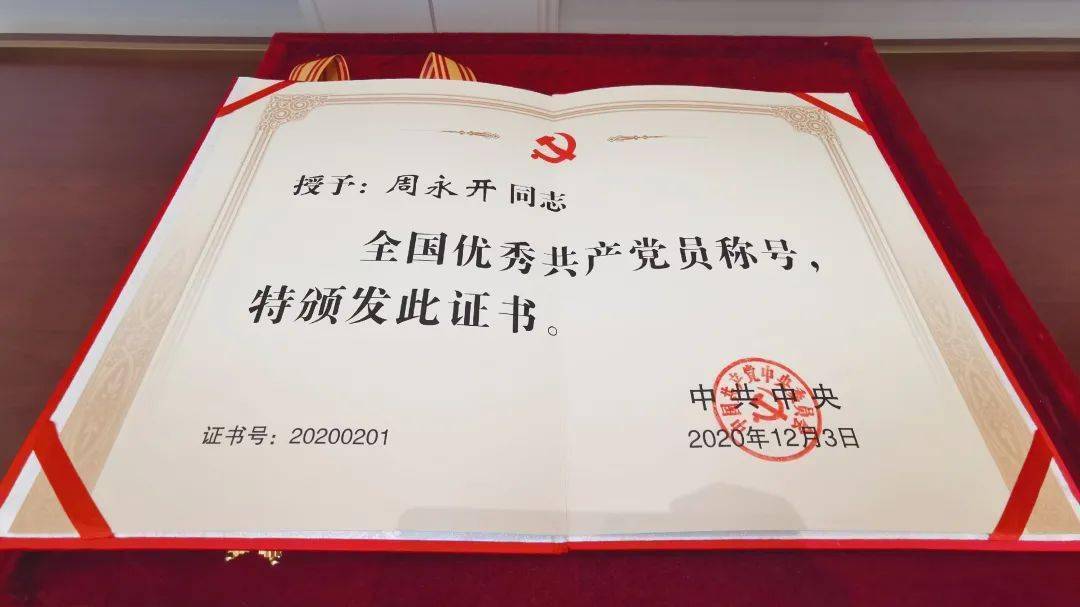 授予：周永开同志
全国优秀共产党员称号，
特颁发此证书。
中共中央
中国共产党中央委员会
2020年12月3日
证书号：20200201